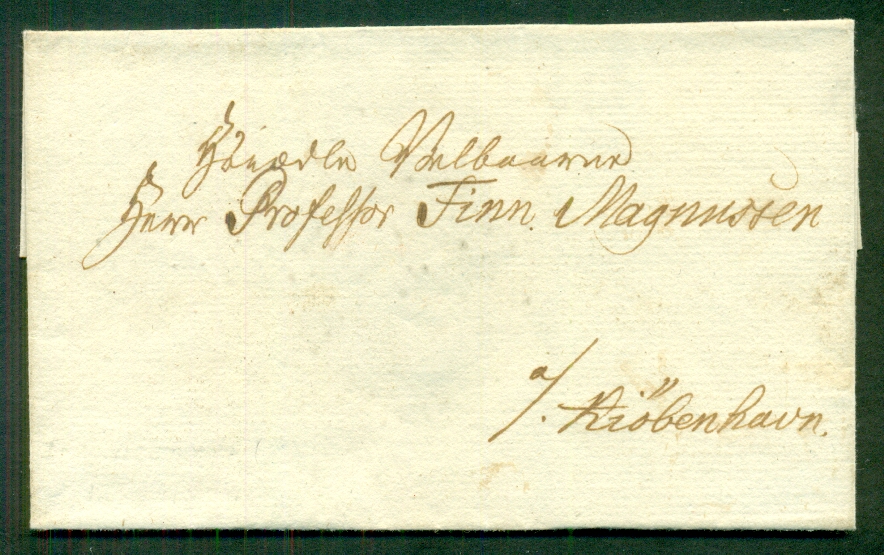 Höiædle Velbaarne
Herr Professor Finn. Magnussen
a/. Kiöbenhavn.